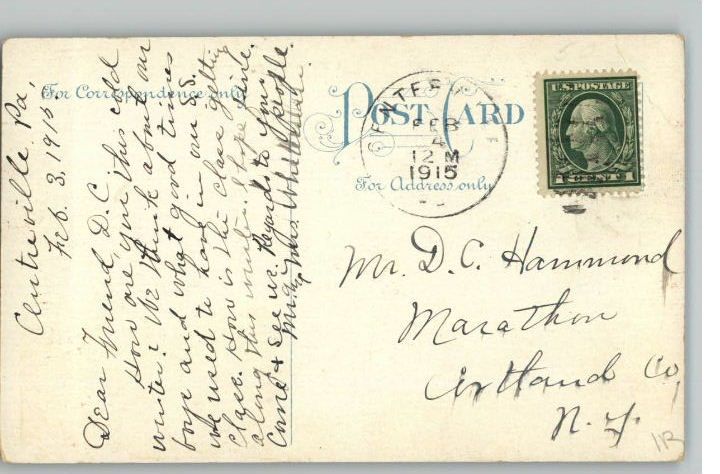 For Correspondence only
POST CARD
For Address only
CENTERV
FEB
4
12 M
1915
U.S. POSTAGE
1 CENT 1
Centreville Pa,
Feb. 3, 1915.
Dear Friend, D.C.
How are you this cold
winter? We think about our
boys and what good times
we used to have in our S.S.
class. How is the class getting
along this winter. I hope fine.
Come & See us. Regards to your people.
Mr. & Mrs.
Mr. D. C. Hammond
Marathon
Cortland Co,
N. Y.